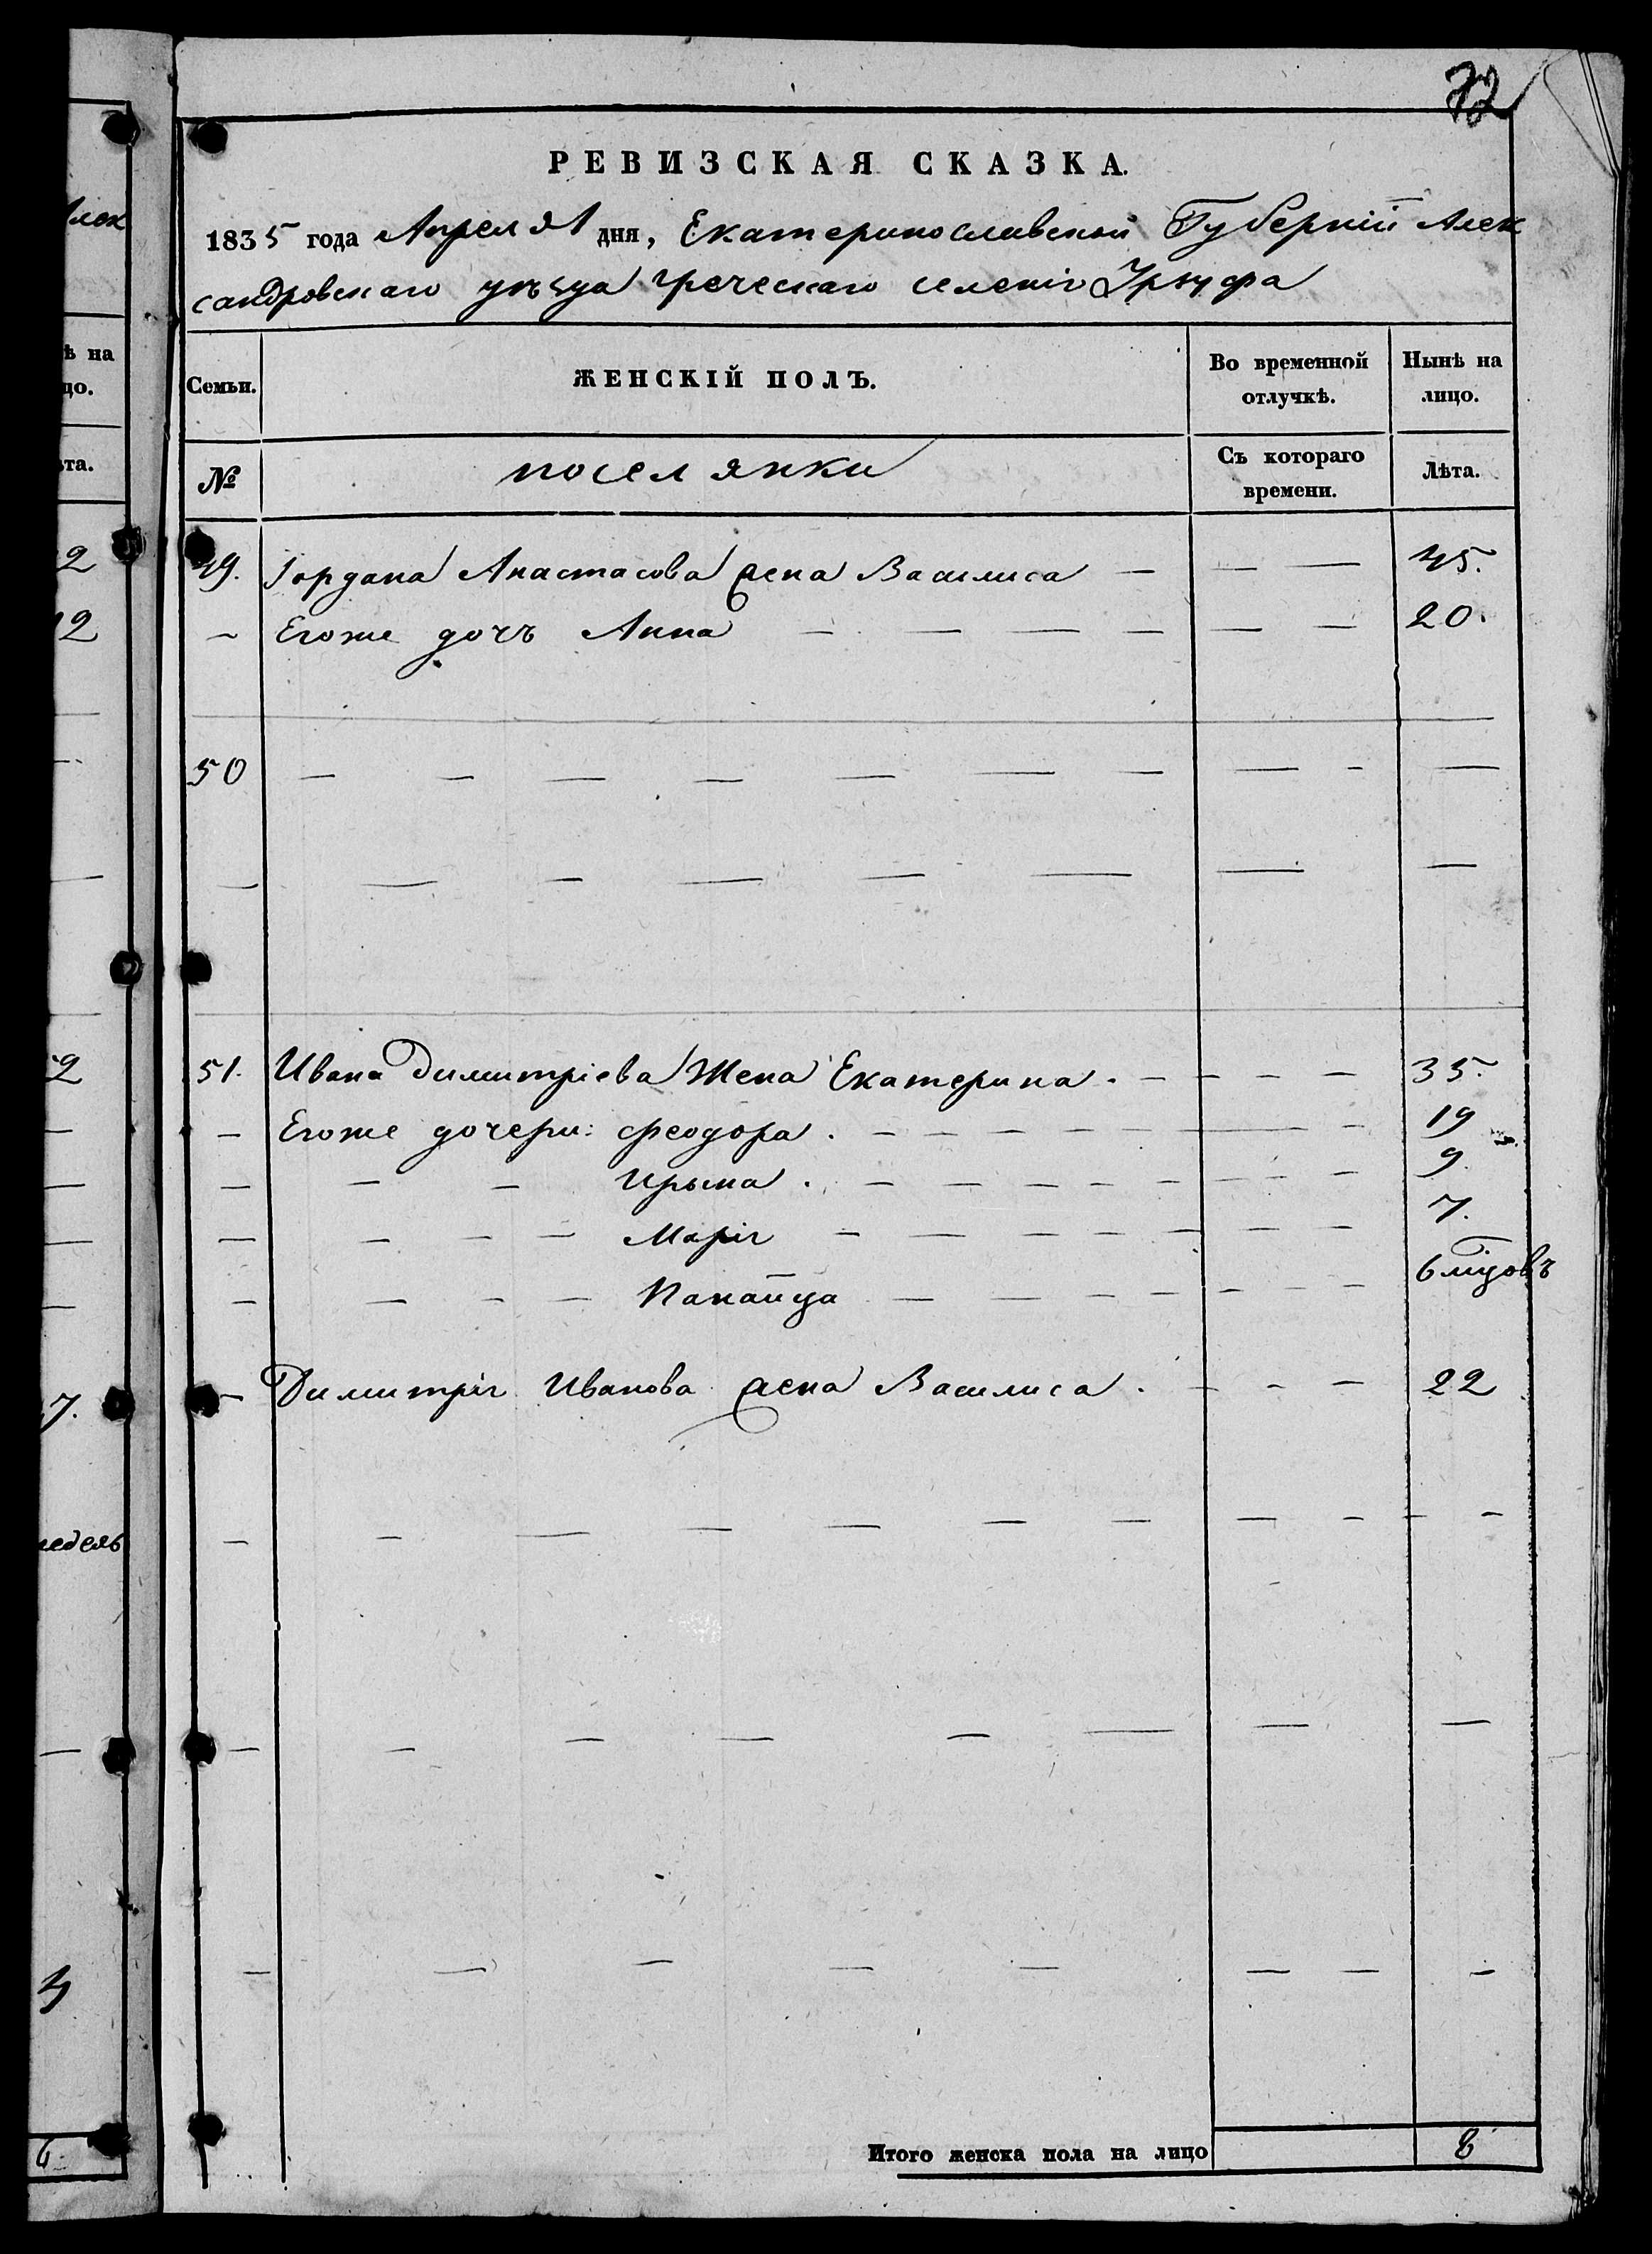 72
РЕВИЗСКАЯ СКАЗКА.
1835 года Апреля 1 дня, Екатеринославской Губерніи Алек
сандровскаго уѣзда греческаго селенія Урзуфа
Семьи. ЖЕНСКІЙ ПОЛЪ. Во временной отлучкѣ. Нынѣ на лицо.
№ поселянки Съ котораго времени. Лѣта.
49. Іордана Анастасова жена Василиса — — — 45.
— Егоже дочъ Анна — — — — — — 20.
50 — — — — — — — — - —
— — — — — — — —
51. Ивана Димитріева Жена Екатерина. — — — — 35.
— Егоже дочери: феодора. — — — — — — — 19
— — — Ирына. — — — — — — — — — 9.
— — — — Марія — — — — — — — — 7.
— — — — Панаица — — — — — — — 6 мцовъ
— Димитрія Иванова жена Василиса. - - — 22
— — — — — — — — - - -
— — — — — — — —
— — — — — — — -
Итого женска пола на лицо 8
лек
ѣ на
цо.
ѣта.
2
12
2
7.
недель
6.